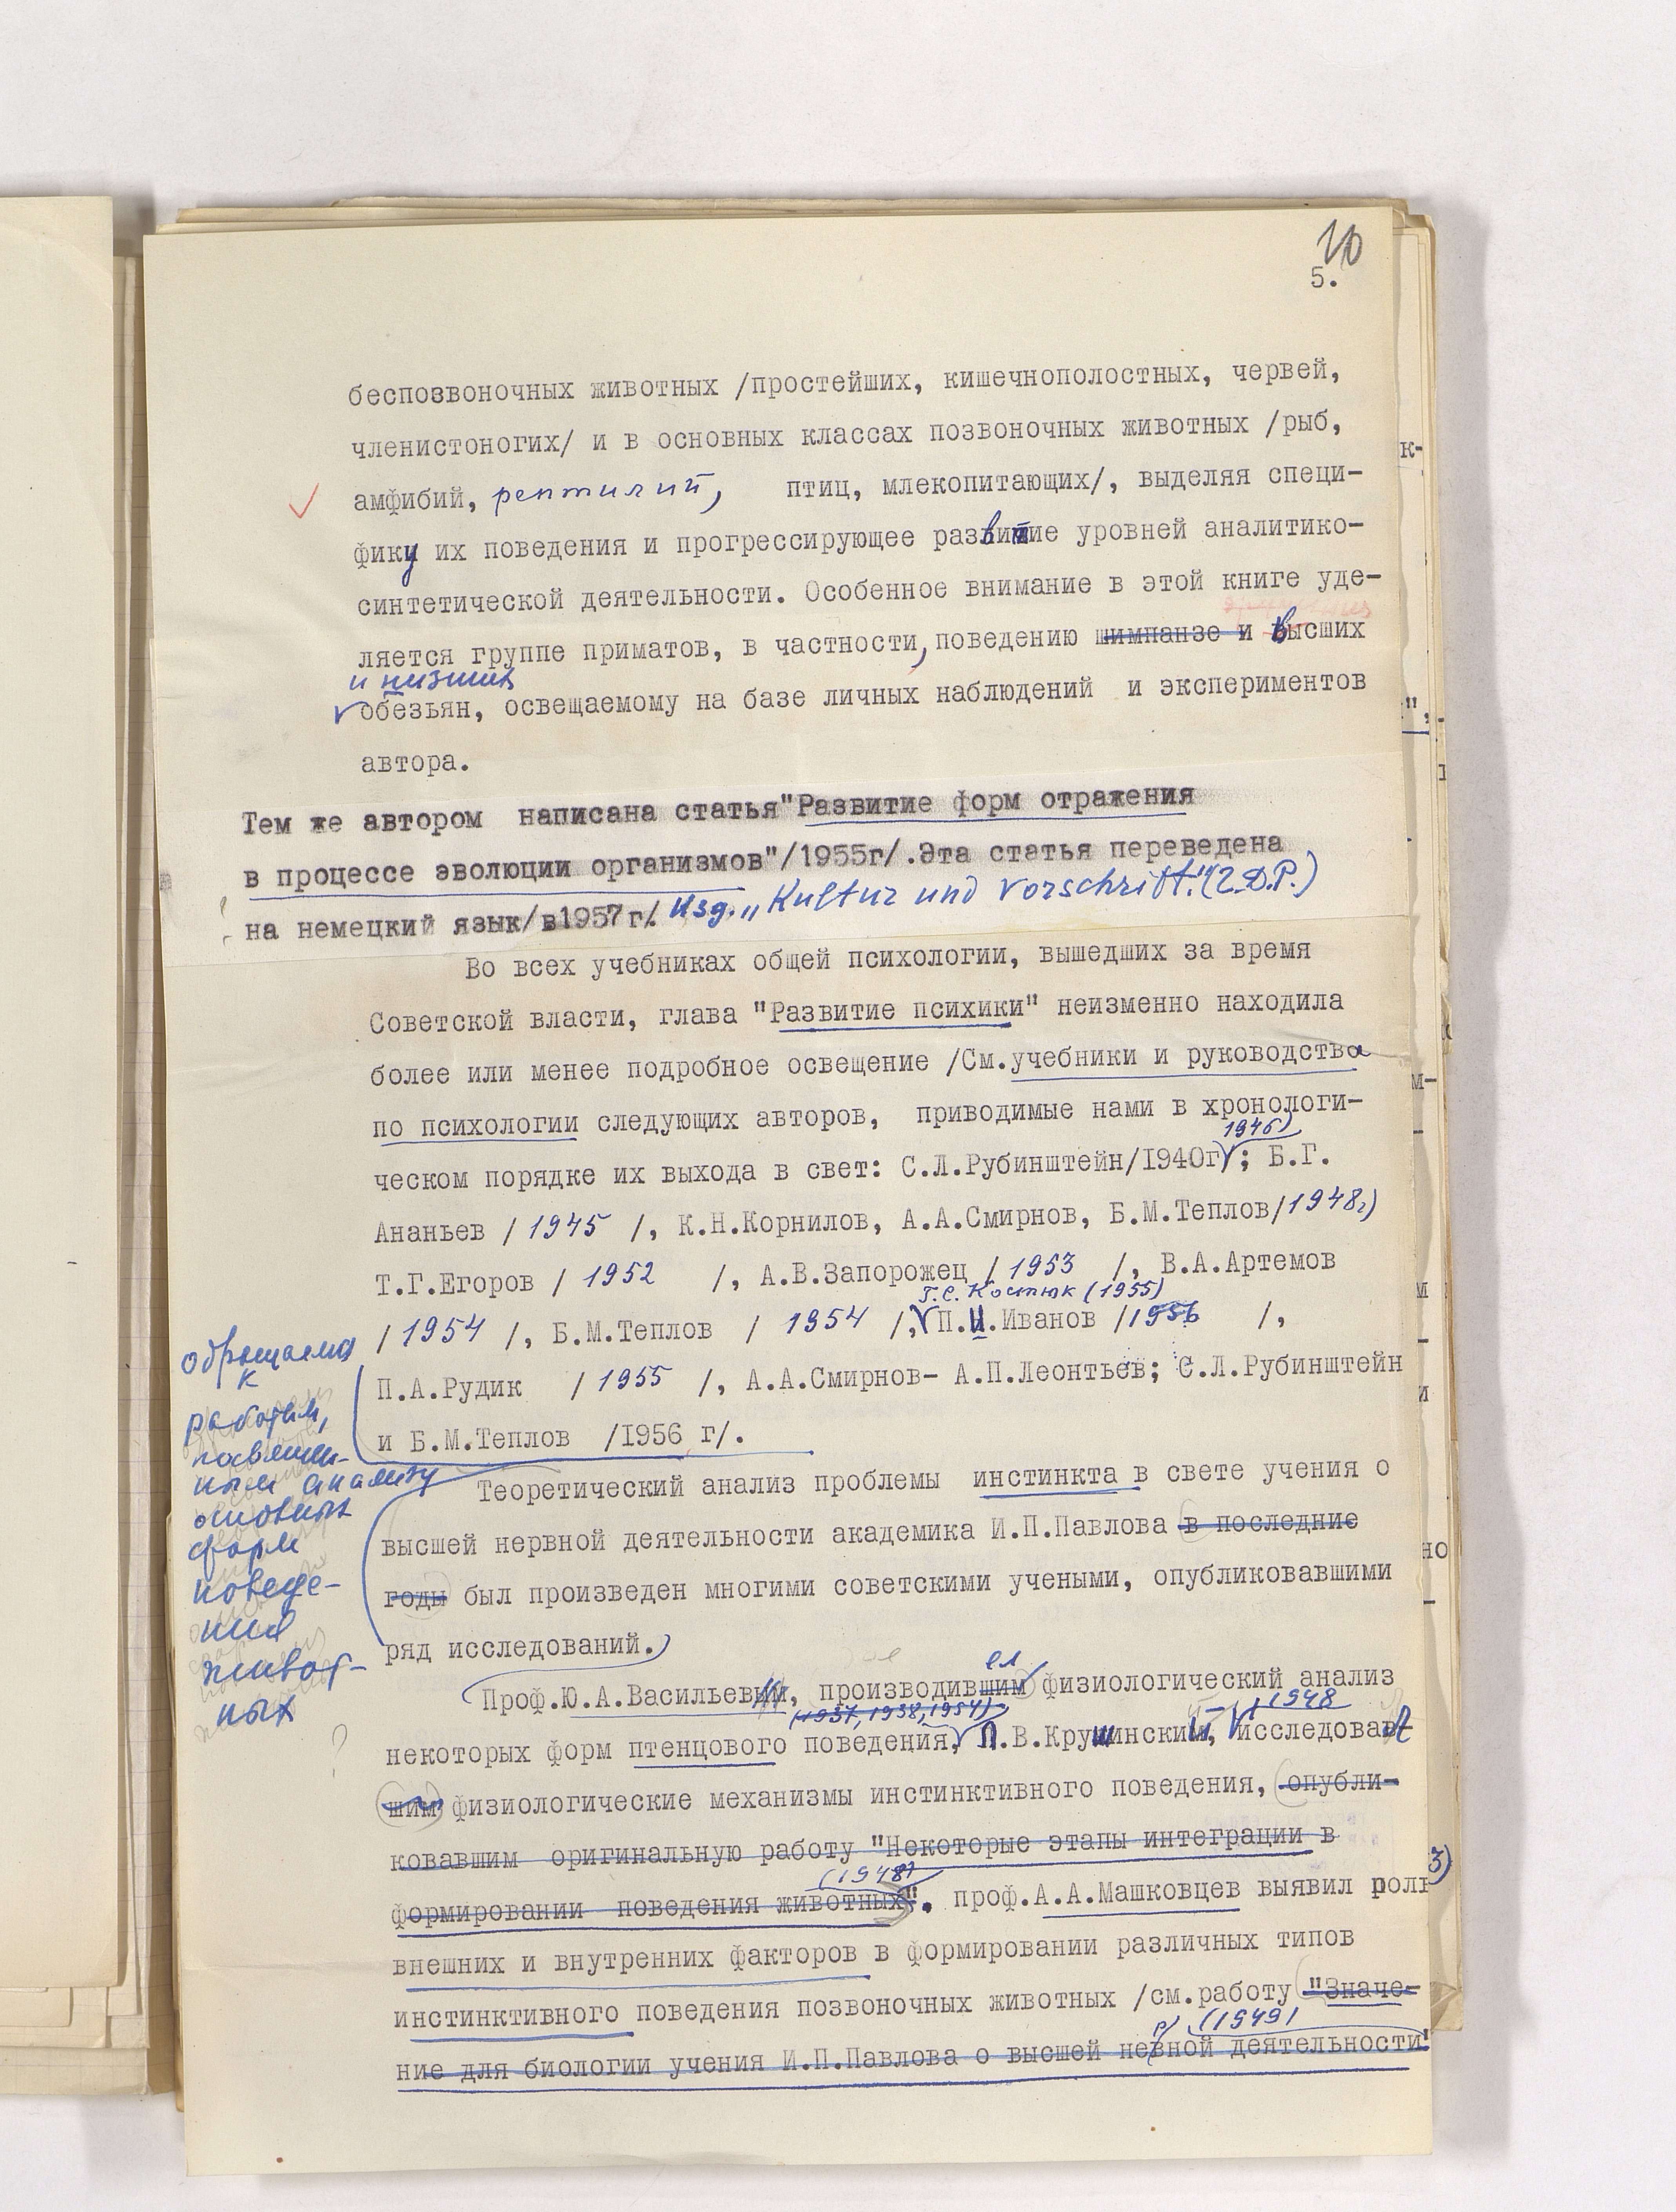 10
5.
беспозвоночных животных /простейших, кишечнополостных, червей,
членистоногих/ и в основных классах позвоночных животных /рыб,
амфибий, рептилий, птиц, млекопитающих/, выделяя специ-
фику их поведения и прогрессирующее развитие уровней аналитико-
синтетической деятельности. Особенное внимание в этой книге уде-
ляется группе приматов, в частности, поведению шимпанзе и высших
и низших
обезьян, освещаемому на базе личных наблюдений и экспериментов
автора.
Тем же автором написана статья"Развитие форм отражения
в процессе эволюции организмов"/1955г/.Эта статья переведена
на немецкий язык/в1957г/. Изд. „Kultur und Vorschrift."(Г.D.Р.)
Во всех учебниках общей психологии, вышедших за время
Советской власти, глава "Развитие психики" неизменно находила
более или менее подробное освещение /См.учебники и руководства
по психологии следующих авторов, приводимые нами в хронологи-
1946)
ческом порядке их выхода в свет: С.Л.Рубинштейн/1940г; Б.Г.
Ананьев /1945 /, К.Н.Корнилов, А.А.Смирнов, Б.М.Теплов/1948г)
Т.Г.Егоров / 1952 /, А.В.Запорожец / 1953 /, В.А.Артемов
Г.С. Костюк (1955)
/ 1954 /, Б.М.Теплов / 1954 /, П.И.Иванов /1956 /,
П.А.Рудик / 1955 /, А.А.Смирнов- А.П.Леонтьев; С.Л.Рубинштейн
и Б.М.Теплов /1956 г/.
обращаемся
к
работам,
посвящен-
ным анализу
основных
форм
поведе-
ния
живот-
ных
?
Теоретический анализ проблемы инстинкта в свете учения о
высшей нервной деятельности академика И.П.Павлова в последние
годы был произведен многими советскими учеными, опубликовавшими
ряд исследований.
ел
Проф.Ю.А.Васильевым, производившим физиологический анализ
(1937, 1938, 1954) 1948
некоторых форм птенцового поведения, Л.В.Крушинский, исследовав
шим физиологические механизмы инстинктивного поведения, опубли-
ковавшим оригинальную работу "Некоторые этапы интеграции в
(1948)
формировании поведения животных", проф.А.А.Машковцев выявил роль
внешних и внутренних факторов в формировании различных типов
инстинктивного поведения позвоночных животных /см.работу "Значе-
р) (1949)
ние для биологии учения И.П.Павлова о высшей невной деятельности"